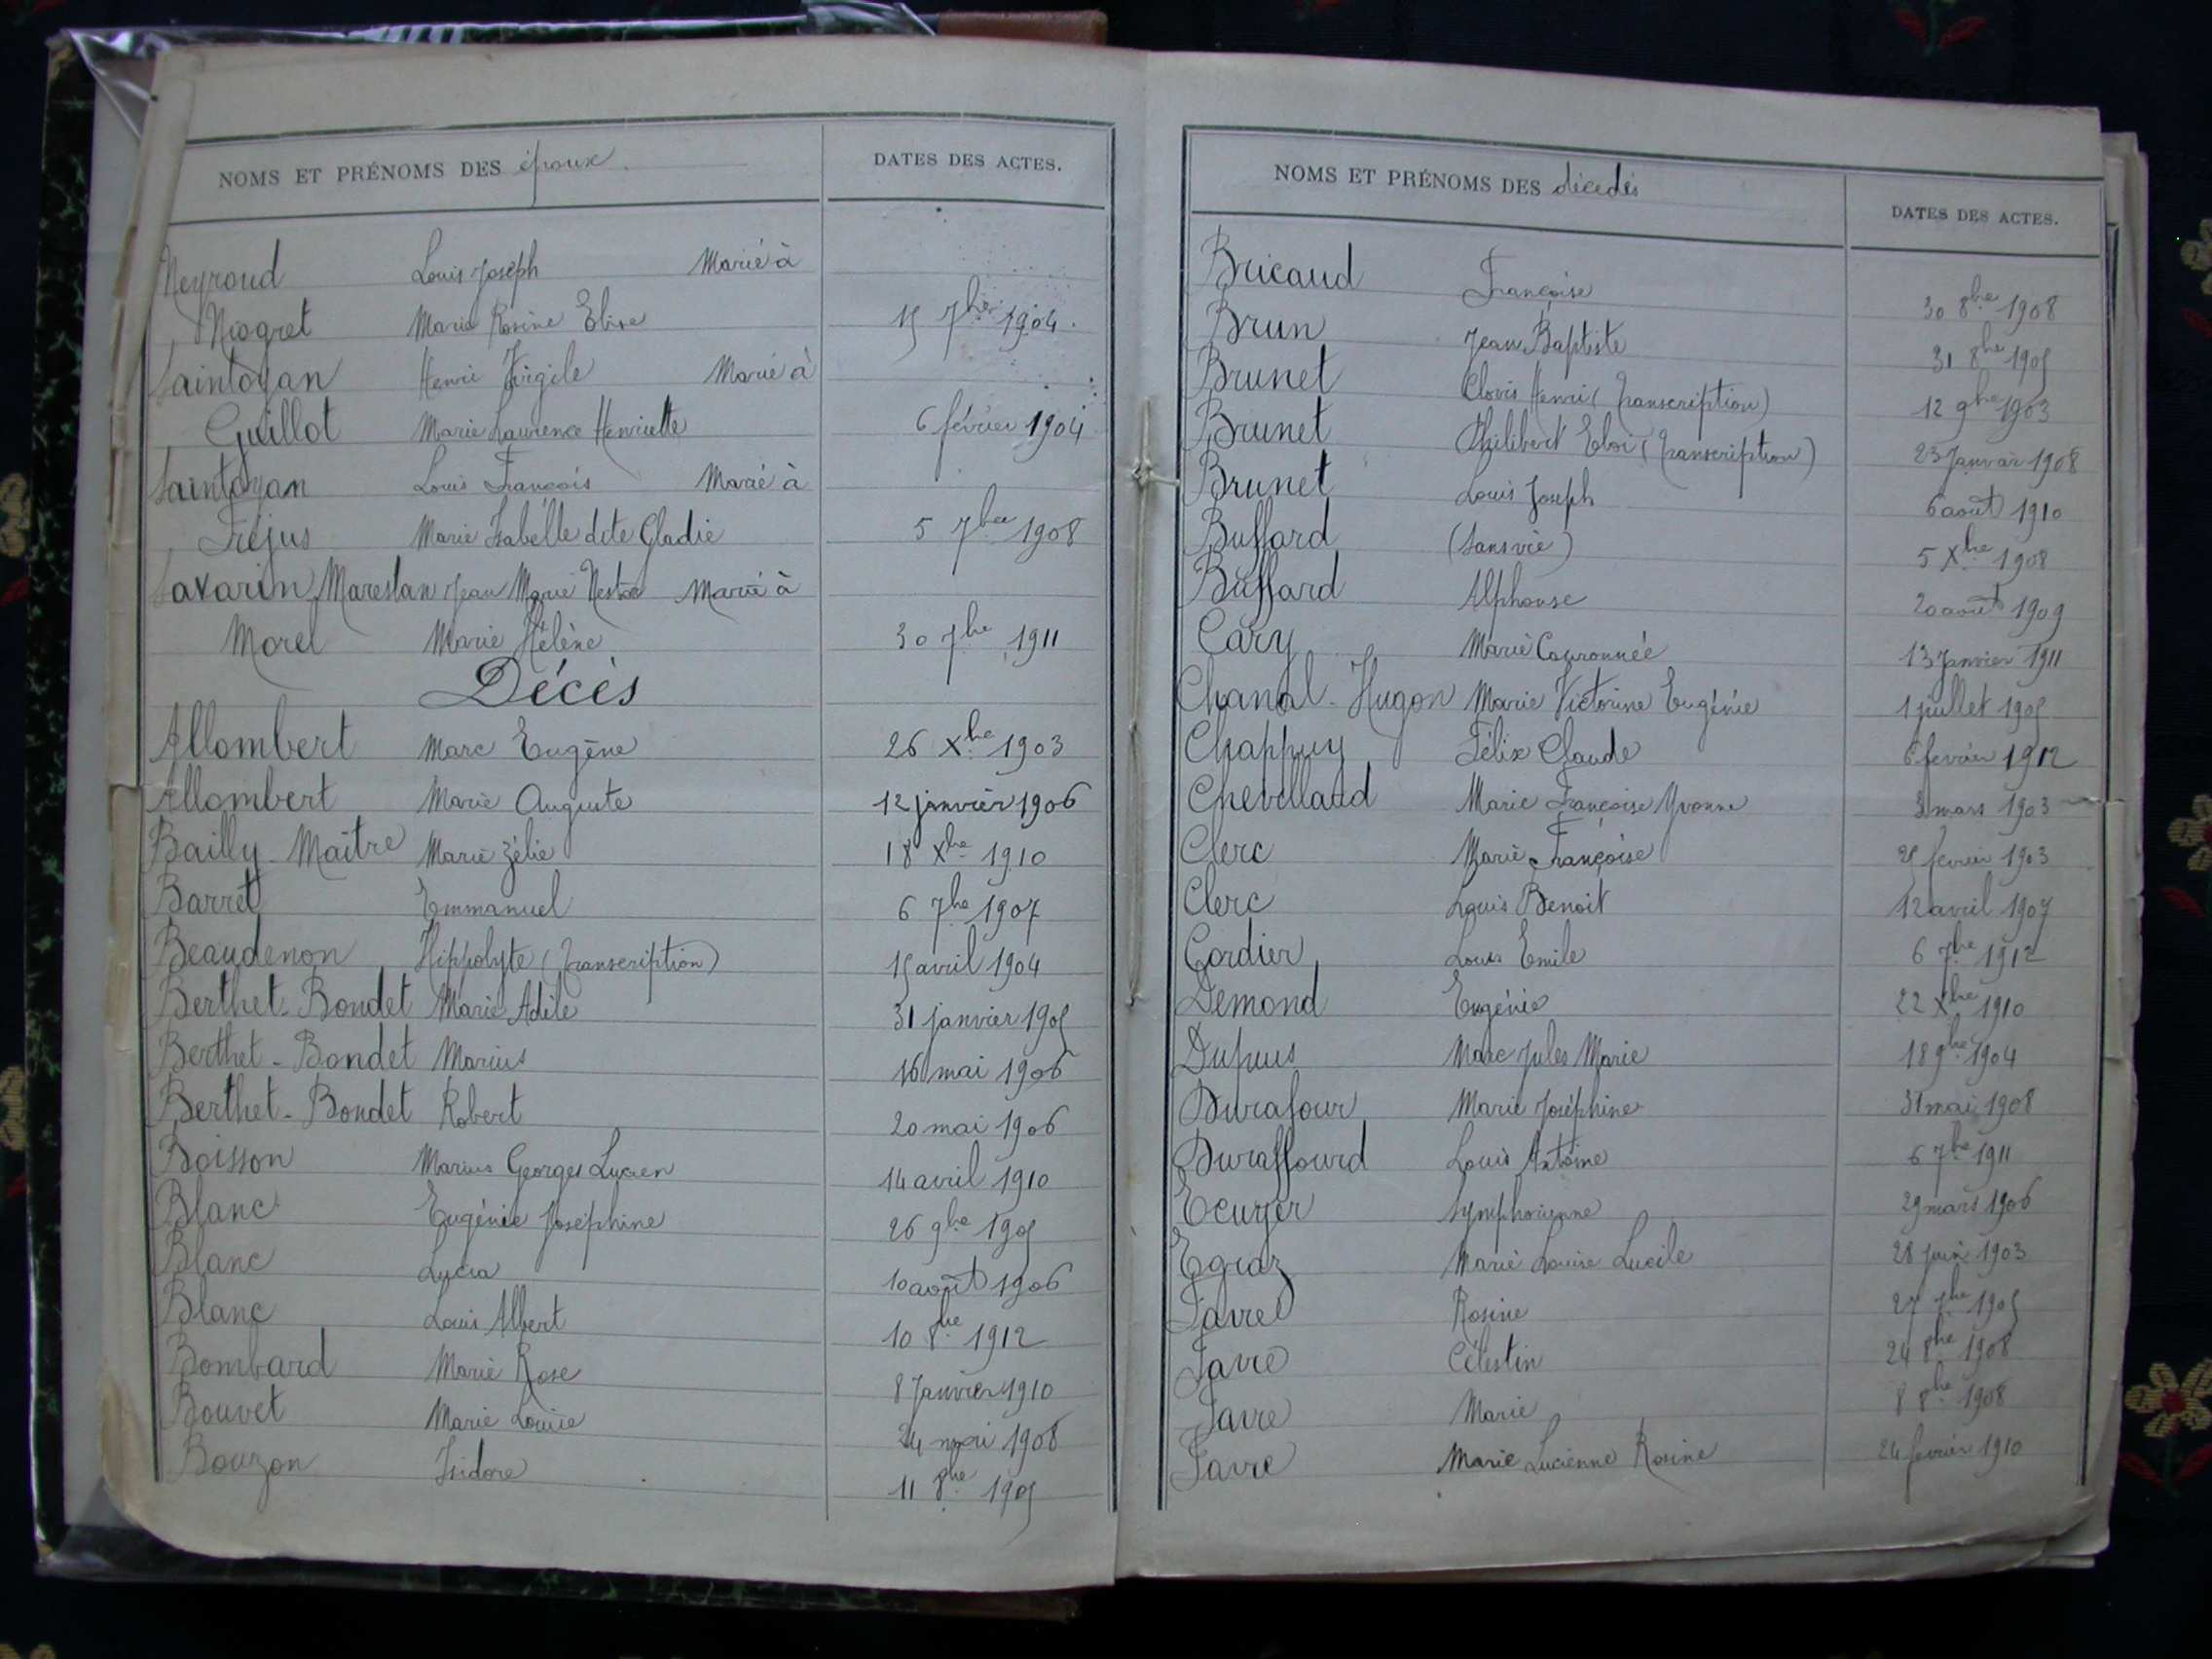 NOMS ET PRÉNOMS DES époux
DATES DES ACTES.
Neyroud Louis Joseph Marié à
Niogret Marie Rosine Elise 15 7bre 1904.
Saintoyan Henri Virgile Marié à
Guillot Marie Laurence Henriette 6 février 1904
Saintoyan Louis François Marié à
Fréjus Marie Isabelle dite Gladie 5 7bre 1908
Savarin Marestan Jean Marie Nestor Marié à
Morel Marie Hélène 30 7bre 1911
Décès
Allombert Marc Eugène 26 Xbre 1903
Allombert Marie Auguste 12 janvier 1906
Bailly-Maître Marie Zélie 18 Xbre 1910
Barret Emmanuel 6 7bre 1907
Beaudenon Hippolyte (Transcription) 15 avril 1904
Berthet-Bondet Marie Adèle 31 janvier 1905
Berthet-Bondet Marius 16 mai 1906
Berthet-Bondet Robert 20 mai 1906
Boisson Marius Georges Lucien 14 avril 1910
Blanc Eugénie Joséphine 26 9bre 1905
Blanc Lucia 10 août 1906
Blanc Louis Albert 10 8bre 1912
Bombard Marie Rose 8 Janvier 1910
Bouvet Marie Louise 24 mai 1908
Bouzon Isidore 11 8bre 1905
NOMS ET PRÉNOMS DES décédés
DATES DES ACTES.
Bricaud Françoise 30 8bre 1908
Brun Jean Baptiste 31 8bre 1905
Brunet Clovis Henri (Transcription) 12 9bre 1903
Brunet Philibert Eloi (Transcription) 23 Janvier 1908
Brunet Louis Joseph 6 août 1910
Buffard (Sans vie) 5 Xbre 1908
Buffard Alphonse 20 août 1909
Cary Marie 13 Janvier 1911
Chanal-Hugon Marie Victorine Eugénie 1 juillet 1905
Chappuy Félix Claude 6 février 1912
Chevillard Marie Françoise Yvonne mars 1903
Clerc Marie Françoise février 1903
Clerc Louis Benoit 12 avril 1907
Cordier Louis Emile 6 7bre 1912
Demond Eugénie 22 Xbre 1910
Dupuis Marc Jules Marie 18 9bre 1904
Durafour Marie Joséphine 31 mai 1908
Duraffourd Louis Antoine 6 7bre 1911
Ecuyer Symphorienne 29 mars 1906
Egraz Marie Louise Lucile 28 juin 1903
Favre Rosine 27 7bre 1905
Favre Célestin 24 8bre 1908
Favre Marie 8 8bre 1908
Favre Marie Lucienne Rosine 24 février 1910